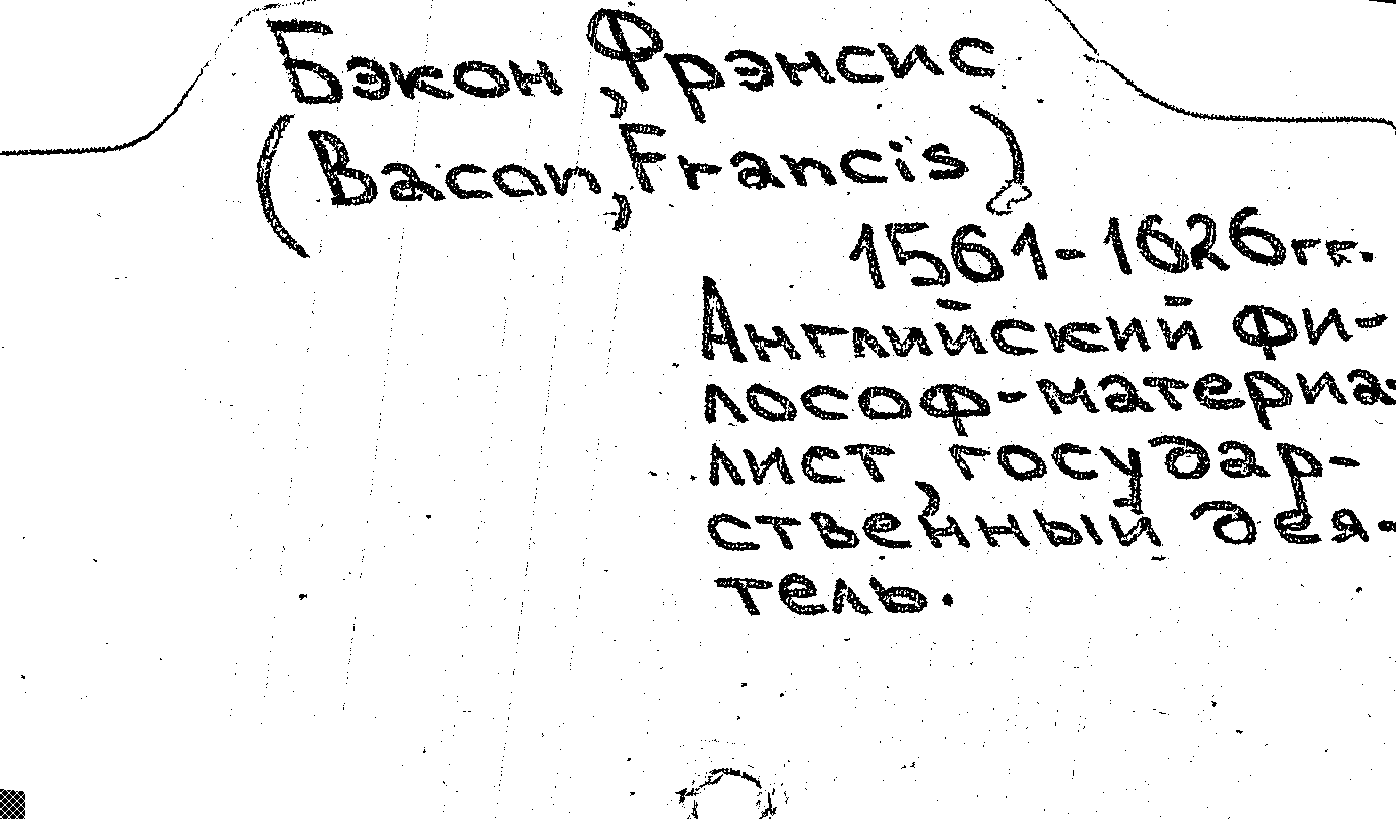 Бэкон, Фрэнсис
(Bacon, Francis)
1561-1626гг.
Английский фи-
лософ-материа-
лист, государ-
ственный дея-
тель.